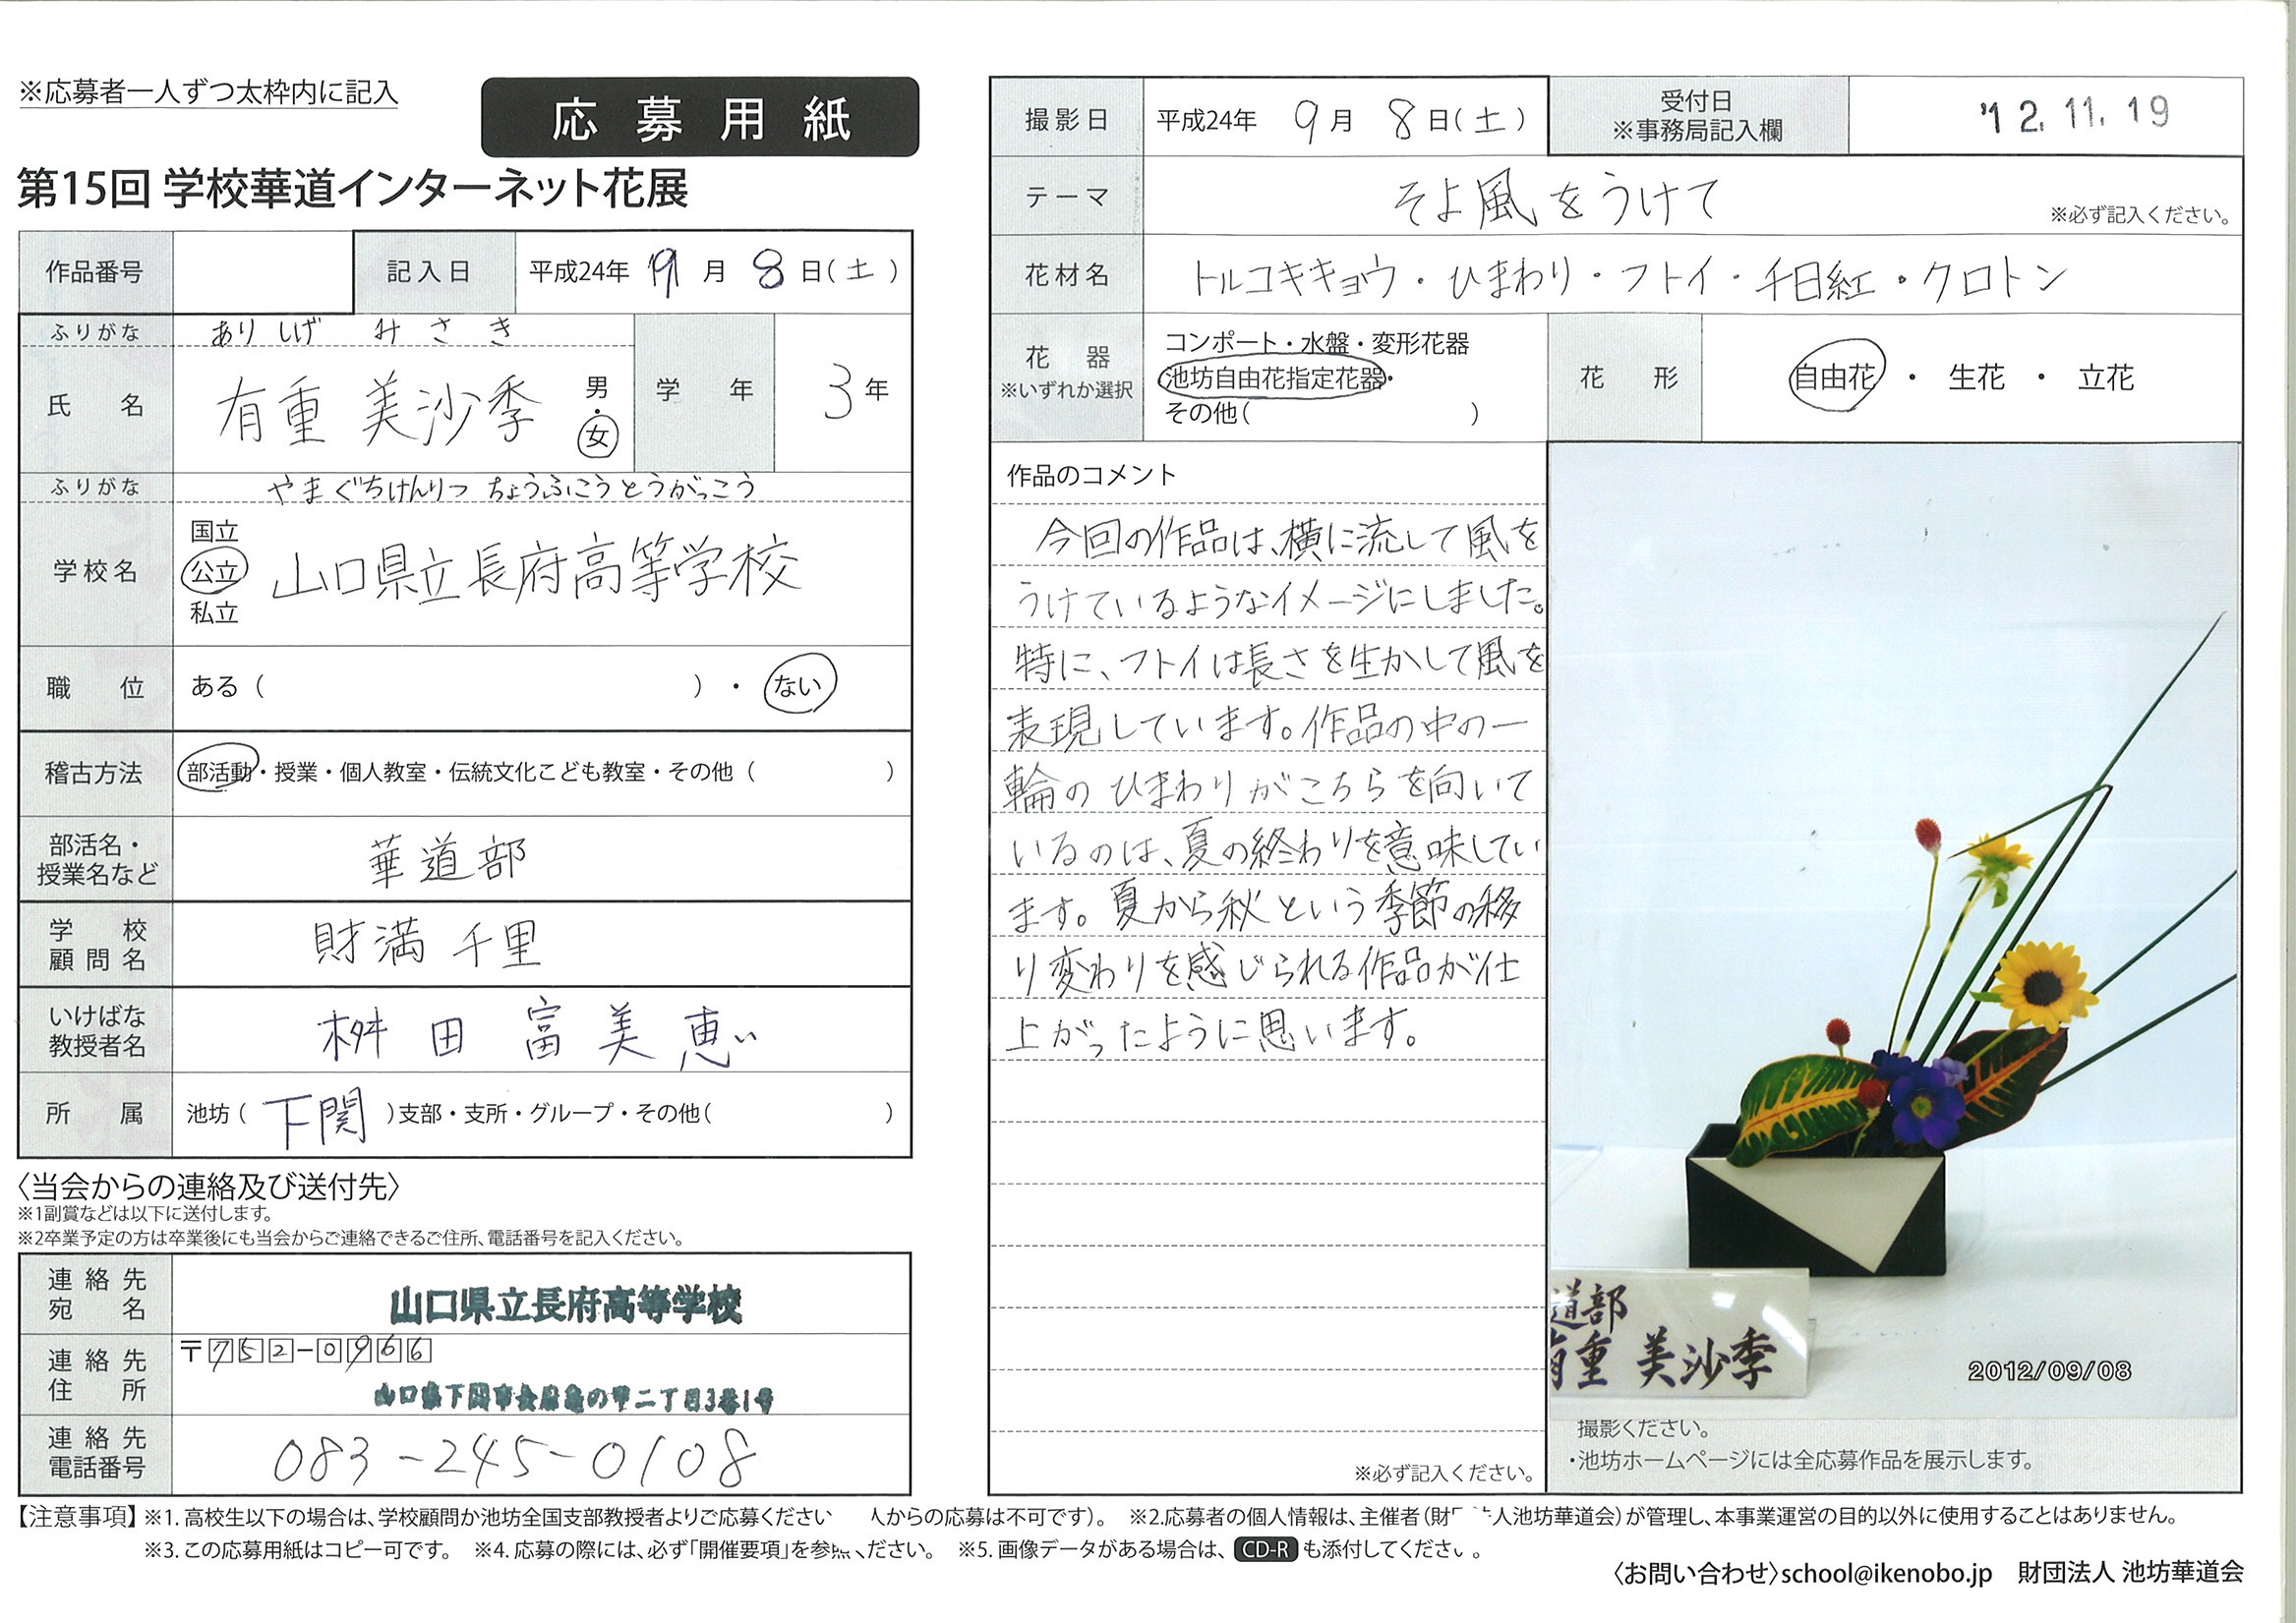 ※応募者一人ずつ太枠内に記入
応募用紙
第15回 学校華道インターネット花展
作品番号
記入日 平成24年 9月 8日(土)
ふりがな ありしげ みさき
氏名 有重 美沙季 男・女
学年 3年
ふりがな やまぐちけんりつ ちょうふこうとうがっこう
学校名 国立 公立 私立 山口県立長府高等学校
職位 ある( )・ない
稽古方法 部活動・授業・個人教室・伝統文化こども教室・その他( )
部活名・授業名など 華道部
学校顧問名 財満 千里
いけばな教授者名 桝田 富美恵
所属 池坊(下関)支部・支所・グループ・その他( )
〈当会からの連絡及び送付先〉
※1副賞などは以下に送付します。
※2卒業予定の方は卒業後にも当会からご連絡できるご住所、電話番号を記入ください。
連絡先宛名 山口県立長府高等学校
連絡先住所 〒752-0966
山口県下関市長府亀の甲二丁目3番1号
連絡先電話番号 083-245-0108
撮影日 平成24年 9月 8日(土)
受付日 ※事務局記入欄 '12.11.19
テーマ そよ風をうけて ※必ず記入ください。
花材名 トルコキキョウ・ひまわり・フトイ・千日紅・クロトン
花器 ※いずれか選択
コンポート・水盤・変形花器
池坊自由花指定花器・
その他( )
花形 自由花・生花・立花
作品のコメント
今回の作品は、横に流して風を
うけているようなイメージにしました。
特に、フトイは長さを生かして風を
表現しています。作品の中の一
輪のひまわりがこちらを向いて
いるのは、夏の終わりを意味してい
ます。夏から秋という季節の移
り変わりを感じられる作品が仕
上がったように思います。
※必ず記入ください。
道部
有重 美沙季
2012/09/08
撮影ください。
・池坊ホームページには全応募作品を展示します。
【注意事項】※1. 高校生以下の場合は、学校顧問か池坊全国支部教授者よりご応募ください 人からの応募は不可です)。 ※2.応募者の個人情報は、主催者(財 人池坊華道会)が管理し、本事業運営の目的以外に使用することはありません。
※3. この応募用紙はコピー可です。 ※4. 応募の際には、必ず「開催要項」を参 ください。 ※5. 画像データがある場合は、CD-Rも添付してください。
〈お問い合わせ〉school@ikenobo.jp 財団法人 池坊華道会